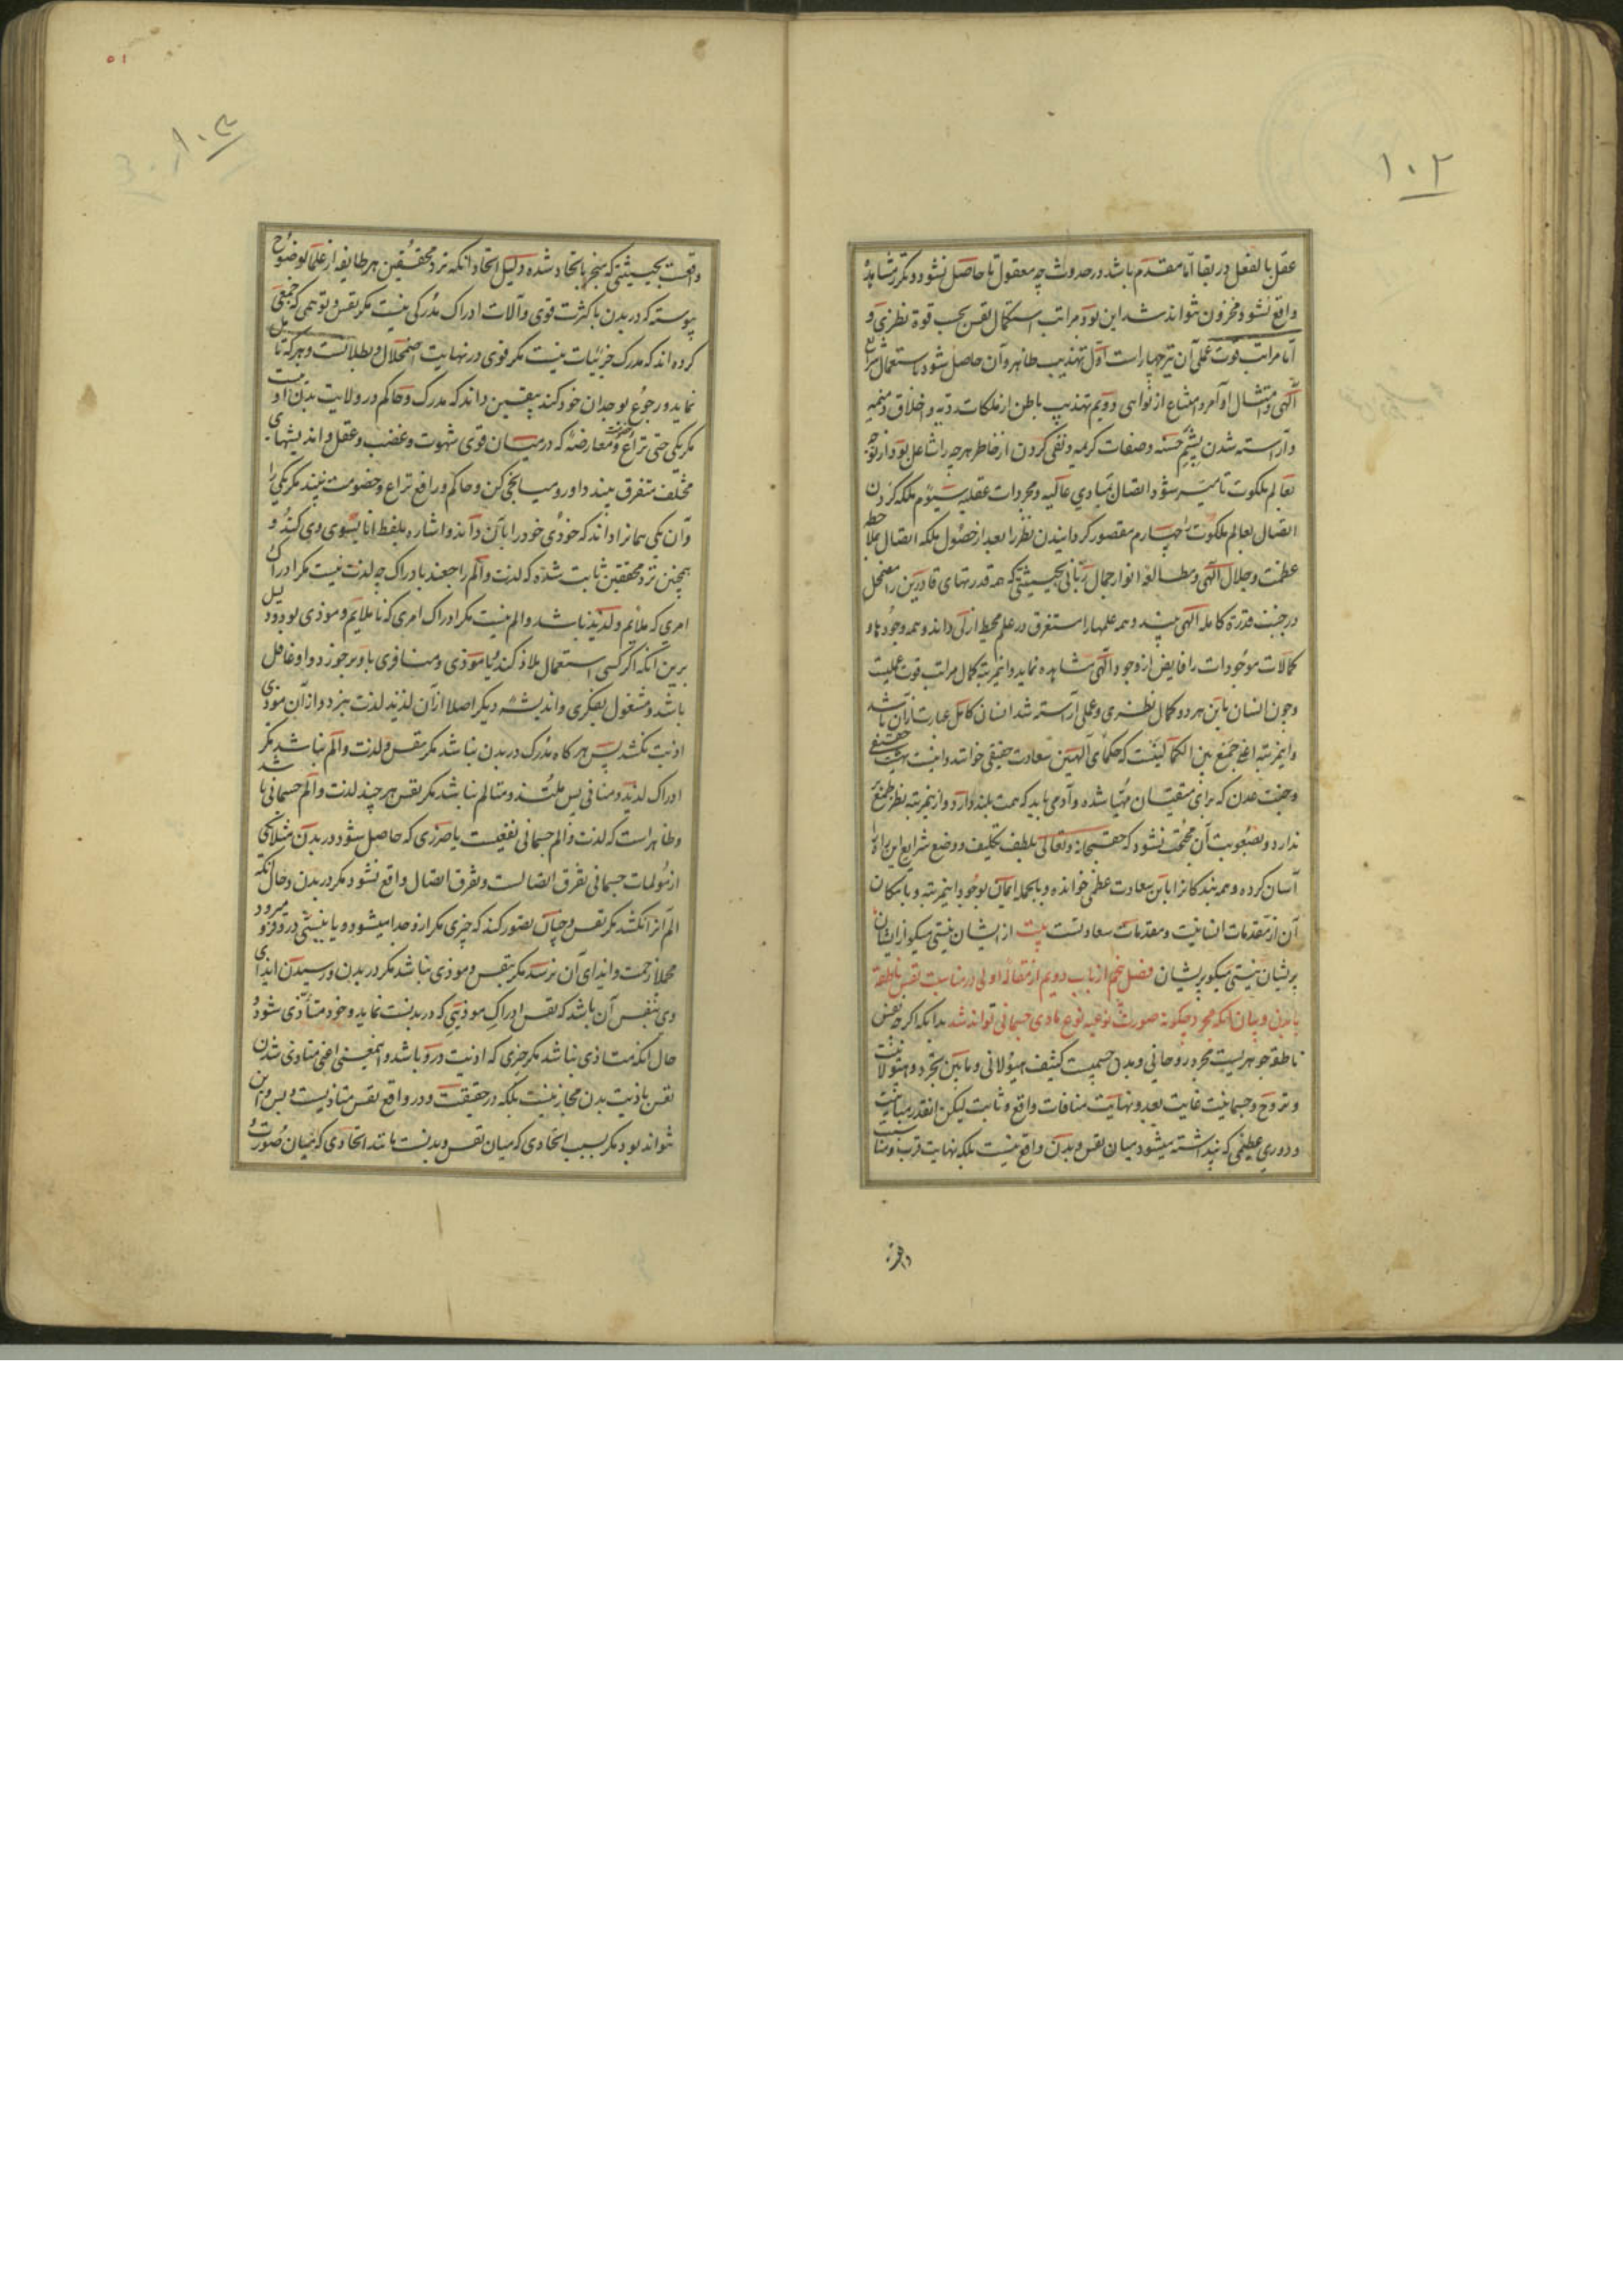 ۱۰۲
عقل بالفعل در بقا اما مقدم باشد در حدوث چه معقول تا حاصل نشود و مکرر مشاهده
واقع نشود مخزون نتواند شد این بود مراتب استکمال نفس بحسب قوة نظری و
اما مراتب قوت عملی آن نیز چهار است اول تهذیب ظاهر و آن حاصل شود باستعمال شرایع
الهی و امتثال اوامر و امتناع از نواهی دویم تهذیب باطن از ملکات ردیه و اخلاق ذمیمه
و آراسته شدن بشیم حسنه و صفات کریمه و نفی کردن از خاطر هر چه را شاغل بود از توجه
بعالم ملکوت تا میسر شود اتصال بمبادی عالیه و مجردات عقلیه سیوم ملکه کردن
اتصال بعالم ملکوت چهارم مقصور گردانیدن نظر را بعد از حصول ملکه اتصال بملاحظه
عظمت و جلال الهی و مطالعه انوار جمال ربانی بحیثیتی که همه قدرتهای قادرین را مضمحل
در جنب قدرة کامله الهی بیند و همه علمها را مستغرق در علم محیط ازلی داند و همه وجودها و
کمالات موجودات را فایض از وجود الهی مشاهده نماید و اینمرتبه کمال مراتب قوت عملیت
و چون انسان باین هر دو کمال نظری و عملی آراسته شد انسان کامل عبارت از آن باشد
و اینمرتبه اعنی جمع بین الکمالینست که حکمای الهیین سعادت حقیقی خوانند و اینست بهشت حقیقی
و جنت عدن که برای متقیان مهیا شده و آدمی باید که همت بلند دارد و از ینمرتبه نظر طمع بر
ندارد و بصعوبت آن محتجب نشود که حق سبحانه و تعالی بلطف تکلیف و وضع شرایع این راه را
آسان کرده و همه بندگانرا باین سعادت عظمی خوانده و بالجمله ایمان بوجود اینمرتبه و بامکان
آن از مقدمات انسانیت و مقدمات سعادتست بیت از ایشان نیستی میگو از ایشان
پریشان نیستی میگو پریشان فصل پنجم از باب دویم از مقاله اولی در مناسبت نفس ناطقه
با بدن و بیان آنکه مجرد چگونه صورت نوعیه نوع مادی جسمانی تواند شد بدانکه اگر چه نفس
ناطقه جوهریست مجرد روحانی و بدن جسمیست کثیف هیولانی و مابین تجرد و هیولانیت
و تروح و جسمانیت غایت بعد و نهایت منافات واقع و ثابت لیکن انقدر مباینت
و دوری عظیمی که پنداشته میشود میان نفس و بدن واقع نیست بلکه نهایت قرب و مناسبت
واقعست
۵۱
۱۰۳
واقعست بحیثیتی که منجر باتحاد شده و دلیل اتحاد انکه نزد محققین هر طایفه از علما بوضوح
پیوسته که در بدن با کثرت قوی و آلات ادراک مدرکی نیست مگر نفس و توهمی که جمعی
کرده اند که مدرک جزئیات نیست مگر قوی در نهایت اضمحلال و بطلانست و هر که تامل
نماید و رجوع بوجدان خود کند بیقین داند که مدرک و حاکم در ولایت بدن او نیست
مگر یکی حتی نزاع و معارضه که در میان قوی شهوت و غضب و عقل و اندیشهای
مختلف متفرق بیند داور و میانجی کن و حاکم و رافع نزاع و خصومت نبیند مگر یکی را
و آن یکی همانرا داند که خودی خود را بآن داند و اشاره بلفظ انا بسوی وی کند و
همچنین نزد محققین ثابت شده که لذت و الم راجعند بادراک چه لذت نیست مگر ادراک
امری که ملائم و لذیذ باشد و الم نیست مگر ادراک امری که ناملایم و موذی بود و دلیل
برین آنکه اگر کسی استعمال ملاذ کند یا موذی و منافری باو برخورد و او غافل
باشد و مشغول بفکری و اندیشه دیگر اصلا از آن لذیذ لذت نبرد و از آن موذی
اذیت نکشد پس هر گاه مدرک در بدن نباشد مگر نفس و لذت و الم نباشد مگر
ادراک لذیذ و منافی پس ملتذ و متالم نباشد مگر نفس هر چند لذت و الم جسمانی باشد
و ظاهر است که لذت و الم جسمانی نفعیست یا ضرری که حاصل شود در بدن مثلا یکی
از مولمات جسمانی تفرق اتصالست و تفرق اتصال واقع نشود مگر در بدن و حال آنکه
الم آنرا نکشد مگر نفس و چنان تصور کند که چیزی مگر ازو جدا میشود و یا نیشی درو فرو میرود
مجملا زحمت و ایذای آن نرسد مگر بنفس و موذی نباشد مگر در بدن و رسیدن ایذای
وی بنفس آن باشد که نفس ادراک موذیی که در بدنست نماید و خود متأذی شود و
حال آنکه متاذی نباشد مگر چیزی که اذیت درو باشد و اینمعنی اعنی متاذی شدن
نفس باذیت بدن مجاز نیست بلکه در حقیقت و در واقع نفس متاذیست و بس و این
نتواند بود مگر بسبب اتحادی که میان نفس و بدنست مانند اتحادی که میان صورت و